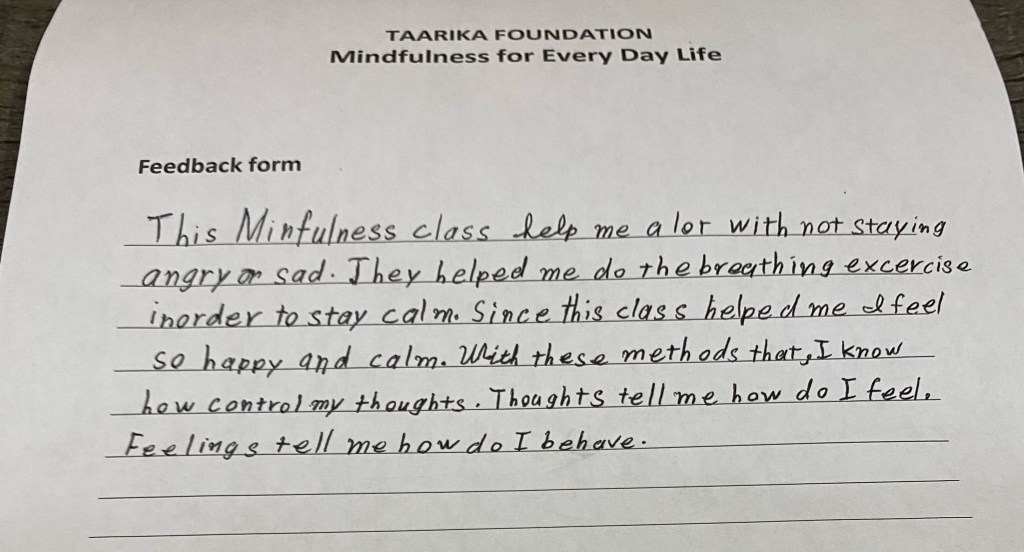 TAARIKA FOUNDATION
Mindfulness for Every Day Life
Feedback form
This Minfulness class help me a lor with not staying
angry or sad. They helped me do the breathing excercise
inorder to stay calm. Since this class helped me I feel
so happy and calm. With these methods that, I know
how control my thoughts. Thoughts tell me how do I feel.
Feelings tell me how do I behave.